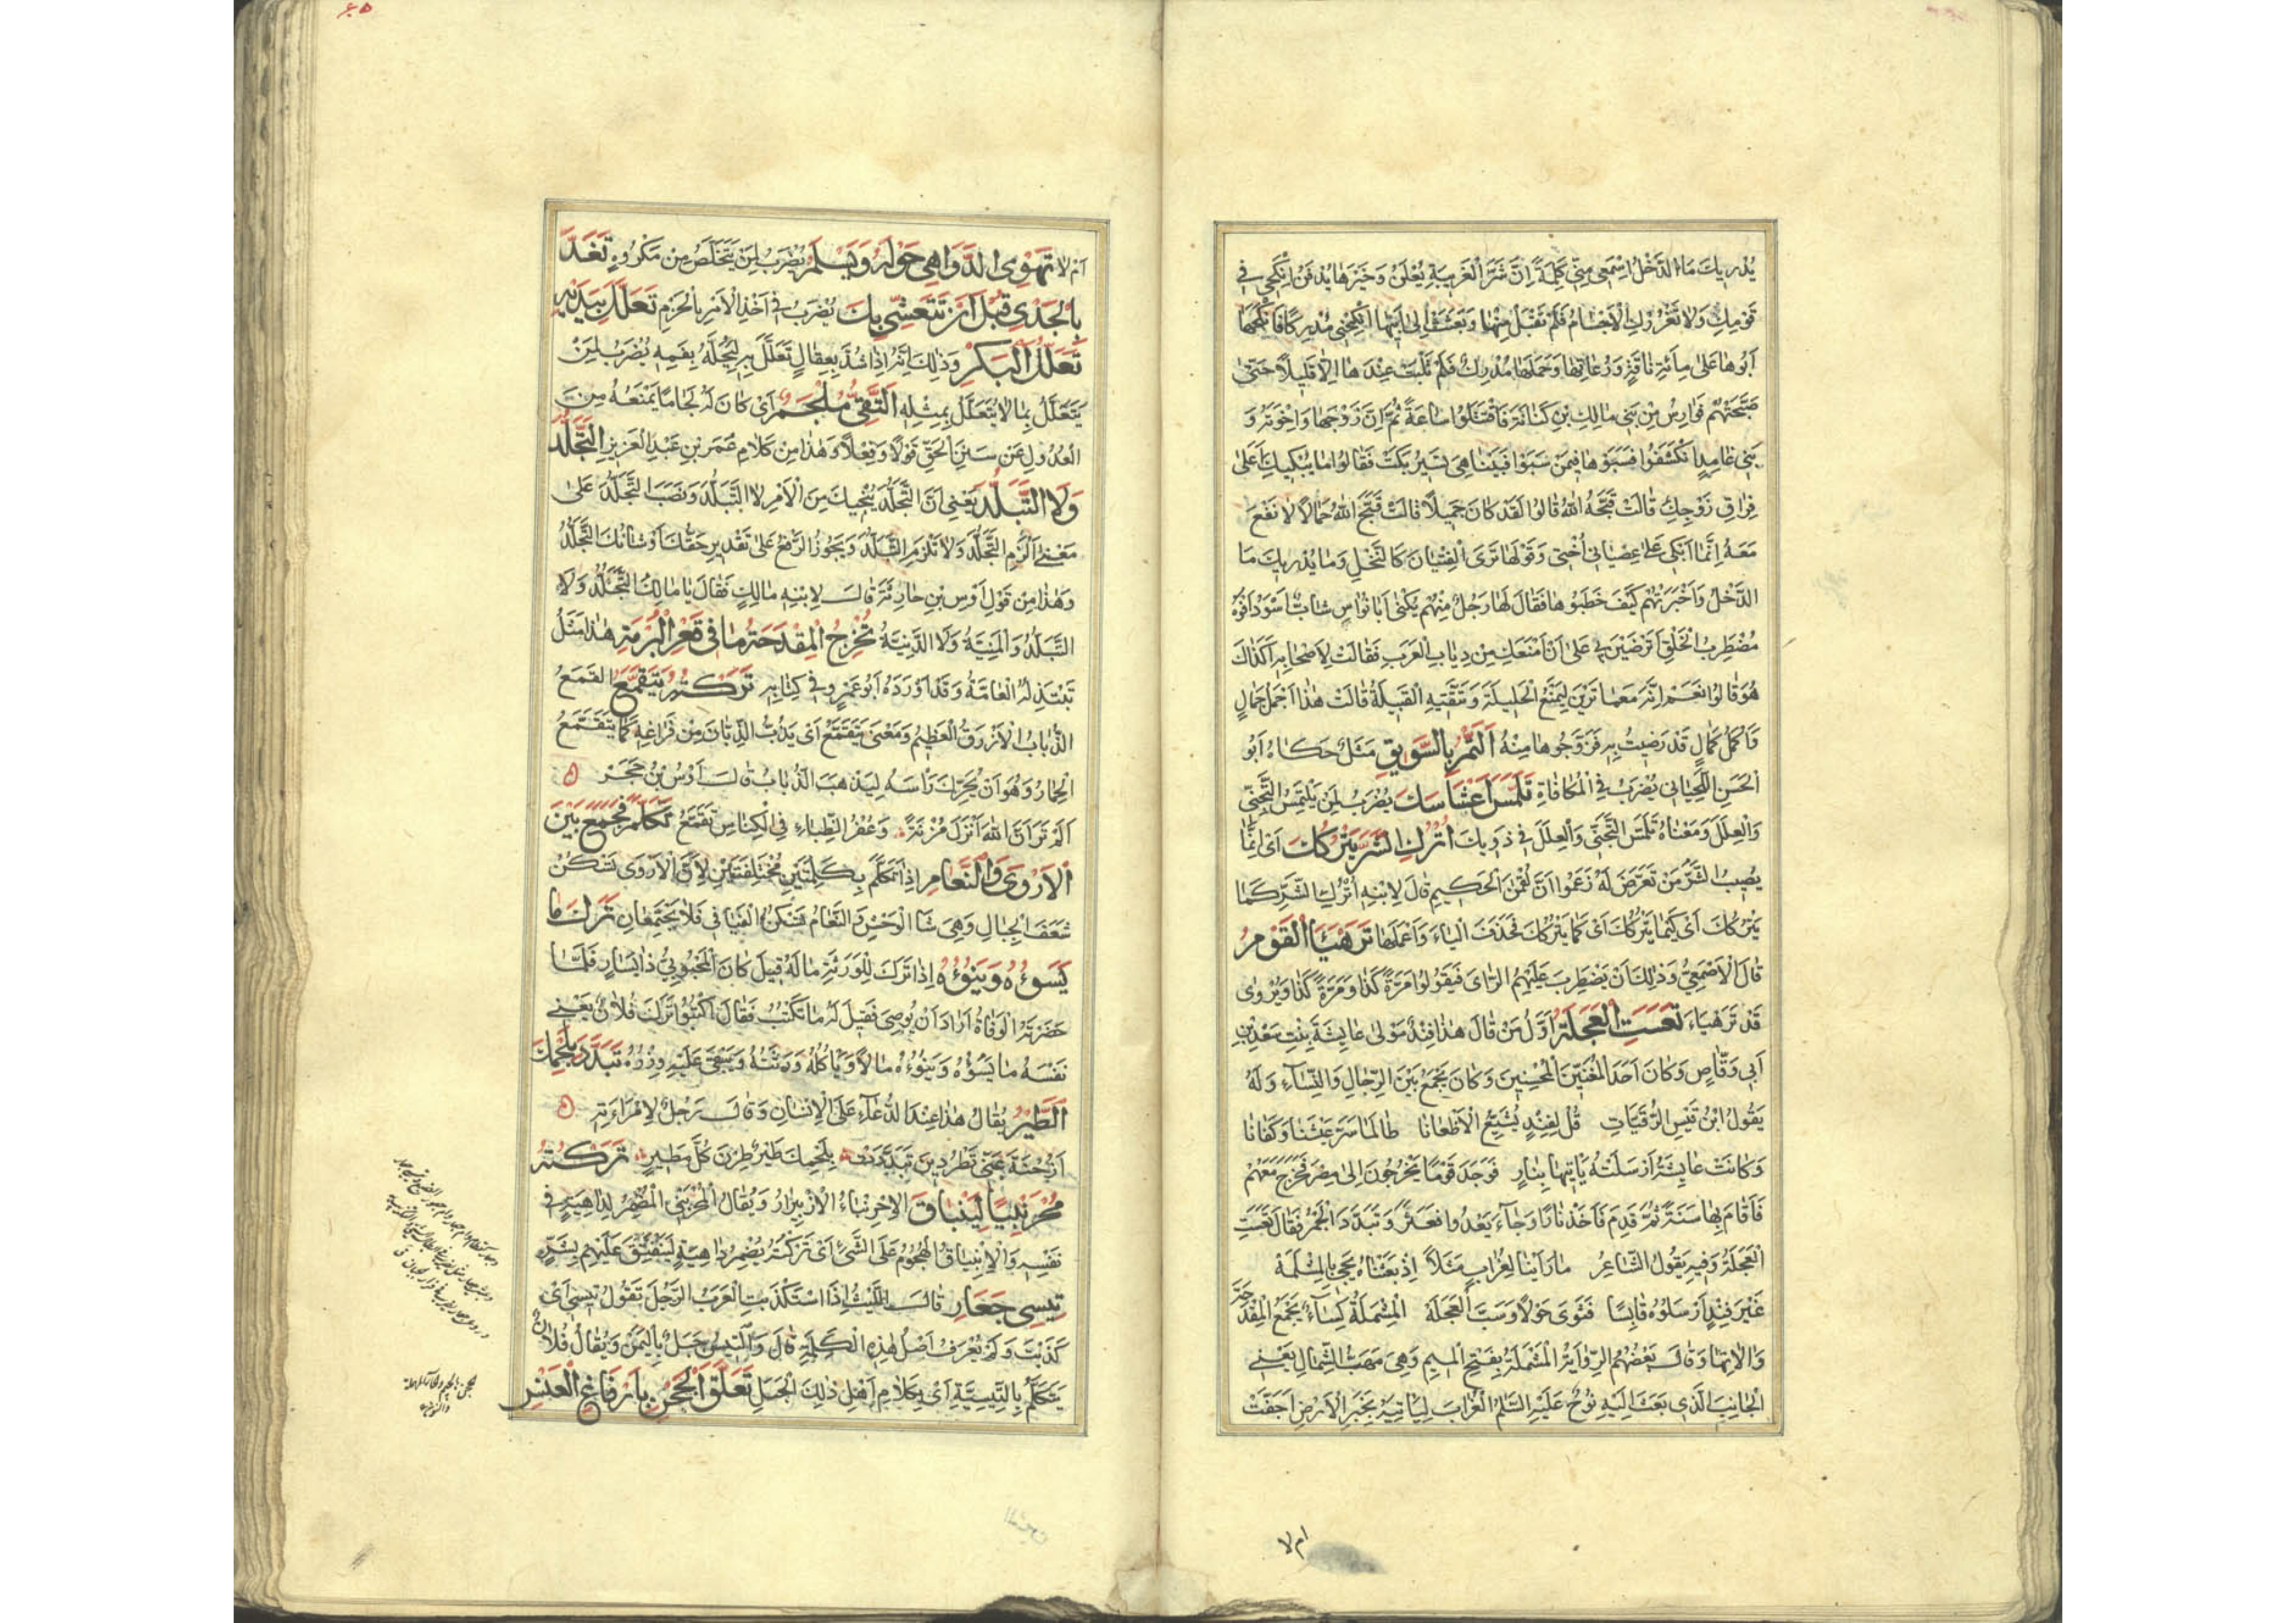 يُدْرِيكَ مَا الدَّخْلُ اِسْمَعِي مِنِّي كَلِمَةً اِنَّ شَرَّ الْغَرِيبَةِ يُعْلَنُ وَخَيْرَهَا يُدْفَنُ اِنْكَحِي فِي
قَوْمِكِ وَلَا تَغْرُرْكِ الْاَجْسَامُ فَلَمْ تَقْبَلْ مِنْهَا وَبَعَثَتْ اِلَى اَبِيهَا اَنْكِحْنِي مُدْرِكًا فَاَنْكَحَهَا
اَبُوهَا عَلَى مِائَةِ نَاقَةٍ وَرُعَاتِهَا وَحَمَلَهَا مُدْرِكٌ فَلَمْ تَلْبَثْ عِنْدَهَا اِلَّا قَلِيلًا حَتَّى
صَبَّحَتْهُمْ فَوَارِسُ مِنْ بَنِي مَالِكِ بْنِ كَنَانَةَ فَاقْتَتَلُوا سَاعَةً ثُمَّ اِنَّ زَوْجَهَا وَاِخْوَتَهُ وَ
بَنِي غَامِدٍ اِنْكَشَفُوا فَسَبَوْهَا فِيمَنْ سَبَوْا فَبَيْنَا هِيَ تَسِيرُ بَكَتْ فَقَالُوا مَا يُبْكِيكِ اَعَلَى
فِرَاقِ زَوْجِكِ قَالَتْ قَبَّحَهُ اللهُ قَالُوا لَقَدْ كَانَ جَمِيلًا قَالَتْ قَبَّحَ اللهُ جَمَالًا لَا نَفْعَ
مَعَهُ اِنَّمَا اَبْكِي عَلَى عِصْيَانِي اُخْتِي وَقَوْلَهَا تَرَى الْفِتْيَانَ كَالنَّخْلِ وَمَا يُدْرِيكَ مَا
الدَّخْلُ وَاَخْبَرَتْهُمْ كَيْفَ خَطَبُوهَا فَقَالَ لَهَا رَجُلٌ مِنْهُمْ يُكْنَى اَبَا نُوَاسٍ شَابٌّ اَسْوَدُ اَفْوَهُ
مُضْطَرِبُ الْخَلْقِ اَتَرْضَيْنَ بِي عَلَى اَنْ اَمْنَعَكِ مِنْ ذِئَابِ الْعَرَبِ فَقَالَتْ لِاَصْحَابِهِ اَكَذَاكَ
هُوَ قَالُوا نَعَمْ اِنَّهُ مَعَ مَا تَرَيْنَ لَيَمْنَعُ الْحَلِيلَةَ وَتَتَّقِيهِ الْقَبِيلَةُ قَالَتْ هَذَا اَجْمَلُ جَمَالٍ
وَاَكْمَلُ كَمَالٍ قَدْ رَضِيتُ بِهِ فَزَوَّجُوهَا مِنْهُ اَلتَّمْرُ بِالسَّوِيقِ مَثَلٌ حَكَاهُ اَبُو
الْحَسَنِ اللِّحْيَانِي يُضْرَبُ فِي الْمُكَافَاةِ تَلَمَّسْ اَعْشَاشَكَ يُضْرَبُ لِمَنْ يَلْتَمِسُ التَّجَنِّي
وَالْعِلَلَ وَمَعْنَاهُ تَلَمَّسِ التَّجَنِّي وَالْعِلَلَ فِي ذَوِيكَ اُتْرُكِ الشَّرَّ يَتْرُكْكَ اَيْ اِنَّمَا
يُصِيبُ الشَّرُّ مَنْ تَعَرَّضَ لَهُ زَعَمُوا اَنَّ لُقْمَانَ الْحَكِيمَ قَالَ لِابْنِهِ اُتْرُكِ الشَّرَّ كَمَا
يَتْرُكَكَ اَيْ كَيْمَا يَتْرُكَكَ اَيْ كَمَا يَتْرُكَكَ فَحَذَفَ الْيَاءَ وَاَعْمَلَهَا تَرَهْيَاَ الْقَوْمُ
قَالَ الْاَصْمَعِيُّ وَذٰلِكَ اَنْ يَضْطَرِبَ عَلَيْهِمُ الرَّايُ فَيَقُولُوا مَرَّةً كَذَا وَمَرَّةً كَذَا وَيُرْوَى
قَدْ تَرَهْيَاءَ تَعَسَتِ الْعَجَلَةُ اَوَّلُ مَنْ قَالَ هَذَا فِنْدٌ مَوْلَى عَايِشَةَ بِنْتِ سَعْدِ بْنِ
اَبِي وَقَّاصٍ وَكَانَ اَحَدَ الْمُغَنِّينَ الْمُحْسِنِينَ وَكَانَ يَجْمَعُ بَيْنَ الرِّجَالِ وَالنِّسَاءِ وَلَهُ
يَقُولُ ابْنُ قَيْسِ الرُّقَيَّاتِ قُلْ لِفِنْدٍ يُشَيِّعُ الْاَظْعَانَا طَالَمَا سَرَّ عَيْشَنَا وَكَفَانَا
وَكَانَتْ عَايِشَةُ اَرْسَلَتْهُ يَاْتِيهَا بِنَارٍ فَوَجَدَ قَوْمًا يَخْرُجُونَ اِلَى مِصْرَ فَخَرَجَ مَعَهُمْ
فَاَقَامَ بِهَا سَنَةً ثُمَّ قَدِمَ فَاَخَذَ نَارًا وَجَاءَ يَعْدُو فَعَثَرَ وَتَبَدَّدَ الْجَمْرُ فَقَالَ تَعَسَتِ
الْعَجَلَةُ وَفِيهِ يَقُولُ الشَّاعِرُ مَا رَاَيْنَا لِغُرَابٍ مَثَلًا اِذْ بَعَثْنَاهُ يَجِيْ بِالْمِشْمَلَهْ
غَيْرَ فِنْدٍ اَرْسَلُوهُ قَابِسًا فَثَوَى حَوْلًا وَسَبَّ الْعَجَلَهْ الْمِشْمَلَةُ كِسَاءٌ يَجْمَعُ الْمِقْدَحَةَ
وَآلَاتِهَا وَقَالَ بَعْضُهُمُ الرِّوَايَةُ الْمَشْمَلَةُ بِفَتْحِ الْمِيمِ وَهِيَ مَهَبُّ الشِّمَالِ يَعْنِي
الْجَانِبَ الَّذِي بَعَثَ اِلَيْهِ نُوحٌ عَلَيْهِ السَّلَمُ الْغُرَابَ لِيَاْتِيَهُ بِخَبَرِ الْاَرْضِ اَجَفَّتْ
ام لا
٤٥
اَمْ لَا تَهْوِي الدَّوَاهِي حَوْلَهُ وَيَسْلَمُ يُضْرَبُ لِمَنْ يَتَخَلَّصُ مِنْ مَكْرُوهٍ تَغَدَّ
بِالْجَدْيِ قَبْلَ اَنْ يَتَعَشَّى بِكَ يُضْرَبُ فِي اَخْذِ الْاَمْرِ بِالْحَزْمِ تَعَلَّلَ بِيَدَيْهِ
تَعَلُّلَ الْبَكْرِ وَذٰلِكَ اَنَّهُ اِذَا شُدَّ بِعِقَالٍ تَعَلَّلَ بِهِ لِيَحُلَّهُ بِفَمِهِ يُضْرَبُ لِمَنْ
يَتَعَلَّلُ بِمَا لَا يُتَعَلَّلُ بِمِثْلِهِ اَلتَّقِيُّ مُلْجَمٌ اَيْ كَانَ لَهُ لِجَامًا يَمْنَعُهُ مِنَ
الْعُدُولِ عَنْ سَنَنِ الْحَقِّ قَوْلًا وَفِعْلًا وَهَذَا مِنْ كَلَامِ عُمَرَ بْنِ عَبْدِ الْعَزِيزِ التَّجَلُّدَ
وَلَا التَّبَلُّدَ يَعْنِي اَنَّ التَّجَلُّدَ يُنْجِيكَ مِنَ الْاَمْرِ لَا التَّبَلُّدَ وَنَصَبَ التَّجَلُّدَ عَلَى
مَعْنَى اِلْزَمِ التَّجَلُّدَ وَلَا تَلْزَمِ التَّبَلُّدَ وَيَجُوزُ الرَّفْعُ عَلَى تَقْدِيرِ حَقُّكَ اَوْ شَانُكَ التَّجَلُّدُ
وَهَذَا مِنْ قَوْلِ اَوْسِ بْنِ حَارِثَةَ قَالَ لِابْنِهِ مَالِكٍ فَقَالَ يَا مَالِكُ التَّجَلُّدُ وَلَا
التَّبَلُّدُ وَالْمَنِيَّةُ وَلَا الدَّنِيَّةُ تُخْرِجُ الْمِقْدَحَةُ مَا فِي قَعْرِ الْبُرْمَةِ هَذَا مَثَلٌ
تَبْتَذِلُهُ الْعَامَّةُ وَقَدْ اَوْرَدَهُ اَبُو عَمْرٍو فِي كِتَابِهِ تَرَكْتُهُ يَتَقَمَّعُ الْقَمَعُ
الذُّبَابُ الْاَزْرَقُ الْعَظِيمُ وَمَعْنَى يَتَقَمَّعُ اَيْ يَذُبُّ الذِّبَّانَ مِنْ فَرَاغِهِ كَمَا يَتَقَمَّعُ
الْحِمَارُ وَهُوَ اَنْ يُحَرِّكَ رَاْسَهُ لِيَذْهَبَ الذُّبَابُ قَالَ اَوْسُ بْنُ حَجَرْ
اَلَمْ تَرَ اَنَّ اللهَ اَنْزَلَ مُزْنَةً وَعُفْرُ الظِّبَاءِ فِي الْكِنَاسِ تَقَمَّعُ تَكَلَّمَ فَجَمَعَ بَيْنَ
الْاَرْوَى وَالنَّعَامِ اِذَا تَكَلَّمَ بِكَلِمَتَيْنِ مُخْتَلِفَتَيْنِ لِاَنَّ الْاَرْوَى تَسْكُنُ
شَعَفَ الْجِبَالِ وَهِيَ شَاءُ الْوَحْشِ وَالنَّعَامُ تَسْكُنُ الْفَيَافِي فَلَا يَجْتَمِعَانِ تَرَكَ مَا
يَسُوؤُهُ وَيَنُوؤُهُ اِذَا تَرَكَ لِلْوَرَثَةِ مَالَهُ قِيلَ كَانَ الْمَحْبُوبِيُّ ذَا يَسَارٍ فَلَمَّا
حَضَرَتْهُ الْوَفَاةُ اَرَادَ اَنْ يُوصِيَ فَقِيلَ لَهُ مَا نَكْتُبُ فَقَالَ اكْتُبُوا تَرَكَ فُلَانٌ يَعْنِي
نَفْسَهُ مَا يَسُوؤُهُ وَيَنُوؤُهُ مَالًا وَيَاْكُلُهُ وَرَثَتُهُ وَيَبْقَى عَلَيْهِ وِزْرُهُ تَبَدَّدَ بِلَحْمِكَ
الطَّيْرُ يُقَالُ هَذَا عِنْدَ الدُّعَاءِ عَلَى الْاِنْسَانِ وَقَالَ رَجُلٌ لِامْرَاَتِهِ
اَزُحْنَةُ عَنِّي تَطْرُدِينَ تَبَدَّدَتْ بِلَحْمِكَ طَيْرٌ طِرْنَ كُلَّ مَطِيرٍ تَرَكْتُهُ
مُحْرَنْبِيًا لِيَنْبَاقَ الْاِحْرِنْبَاءُ الْاِزْبِيْرَارُ وَيُقَالُ الْمُحْرَنْبِي الْمُضْمِرُ لِدَاهِيَةٍ فِي
نَفْسِهِ وَالْاِنْبِيَاقُ الْهُجُومُ عَلَى الشَّيْءِ اَيْ تَرَكْتُهُ يُضْمِرُ دَاهِيَةً لِيَنْفَتِقَ عَلَيْهِمْ بِشَرٍّ
تِيسِي جَعَارِ قَالَ اللَّيْثُ اِذَا اسْتَكْذَبَتِ الْعَرَبُ الرَّجُلَ تَقُولُ تِيسِي اَيْ
كَذَبْتَ وَلَمْ يُعْرَفْ اَصْلُ هَذِهِ الْكَلِمَةِ قَالَ وَالتَّيْسُ جَبَلٌ بِالْيَمَنِ وَيُقَالُ فُلَانٌ
يَتَكَلَّمُ بِالتَّيْسِيَّةِ اَيْ بِكَلَامِ اَهْلِ ذٰلِكَ الْجَبَلِ تَعَلَّقَ الْحَجْنُ بِاَرْفَاغِ الْعَنْسِ